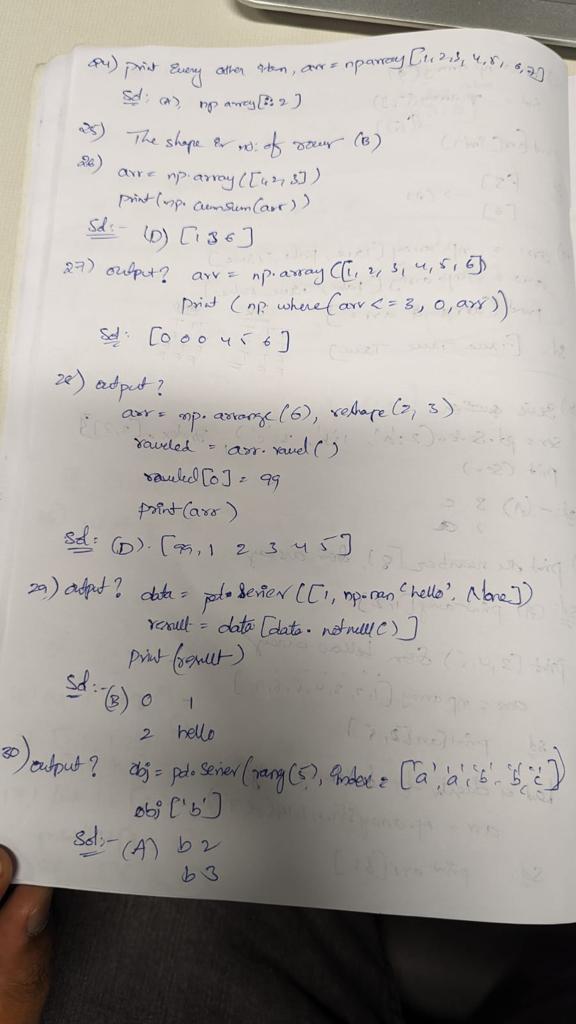 24) print Every other item, arr = np.array [1, 2, 3, 4, 5, 6, 7]
Sol: (A) np array [: : 2]
25) The shape & no: of rows (B)
26) arr = np.array ([1, 2, 3])
print (np. cumsum (arr))
Sol:- (D) [1 3 6]
27) output? arr = np.array ([1, 2, 3, 4, 5, 6])
print (np. where (arr <= 3, 0, arr))
Sol: [0 0 0 4 5 6]
28) output?
arr = np. arrange (6), reshape (2, 3)
raveled = arr. ravel ()
raveled [0] = 99
print (arr)
Sol: (D). [99, 1 2 3 4 5]
29) output? data = pd. Series ([1, np.nan 'hello', None])
result = data [data. notnull ( ) ]
print (result)
Sol:- (B) 0 1
2 hello
30) output? obj = pd. Series (rang (5), index = ['a', 'a', 'b' 'b', 'c'])
obj ['b']
Sol:- (A) b 2
b 3